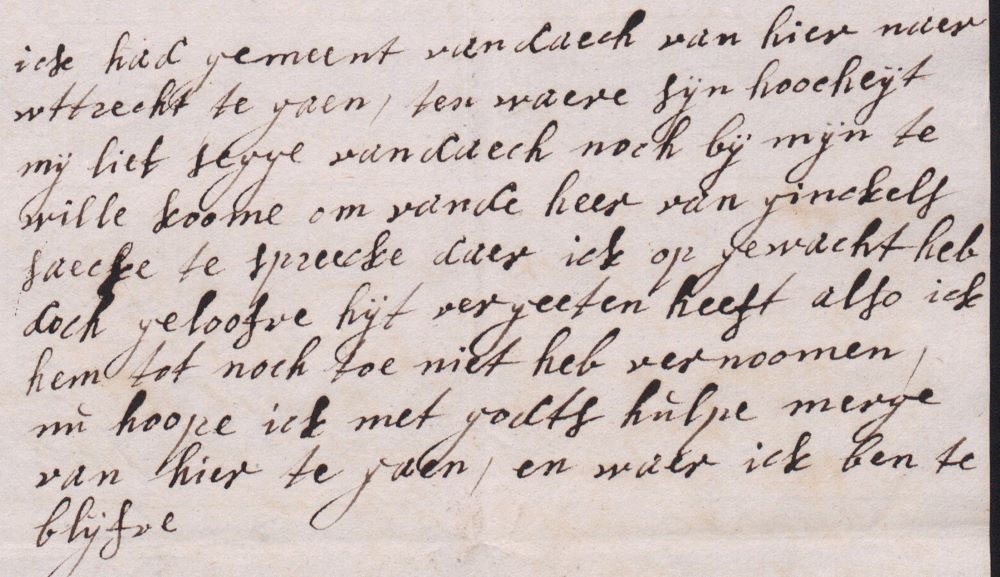 ick had gemeent vandaech van hier naer
wttrecht te gaen, ten waere sijn hoocheijt
mij liet segge vandaech noch bij mijn te
wille koome om vande heer van ginckels
saecke te spreecke daer ick op gewacht heb
doch geloofve hijt vergeeten heeft also ick
hem tot noch toe niet heb vernoomen,
nù hoope ick met godts hùlpe merge
van hier te gaen, en waer ick ben te
blijfve